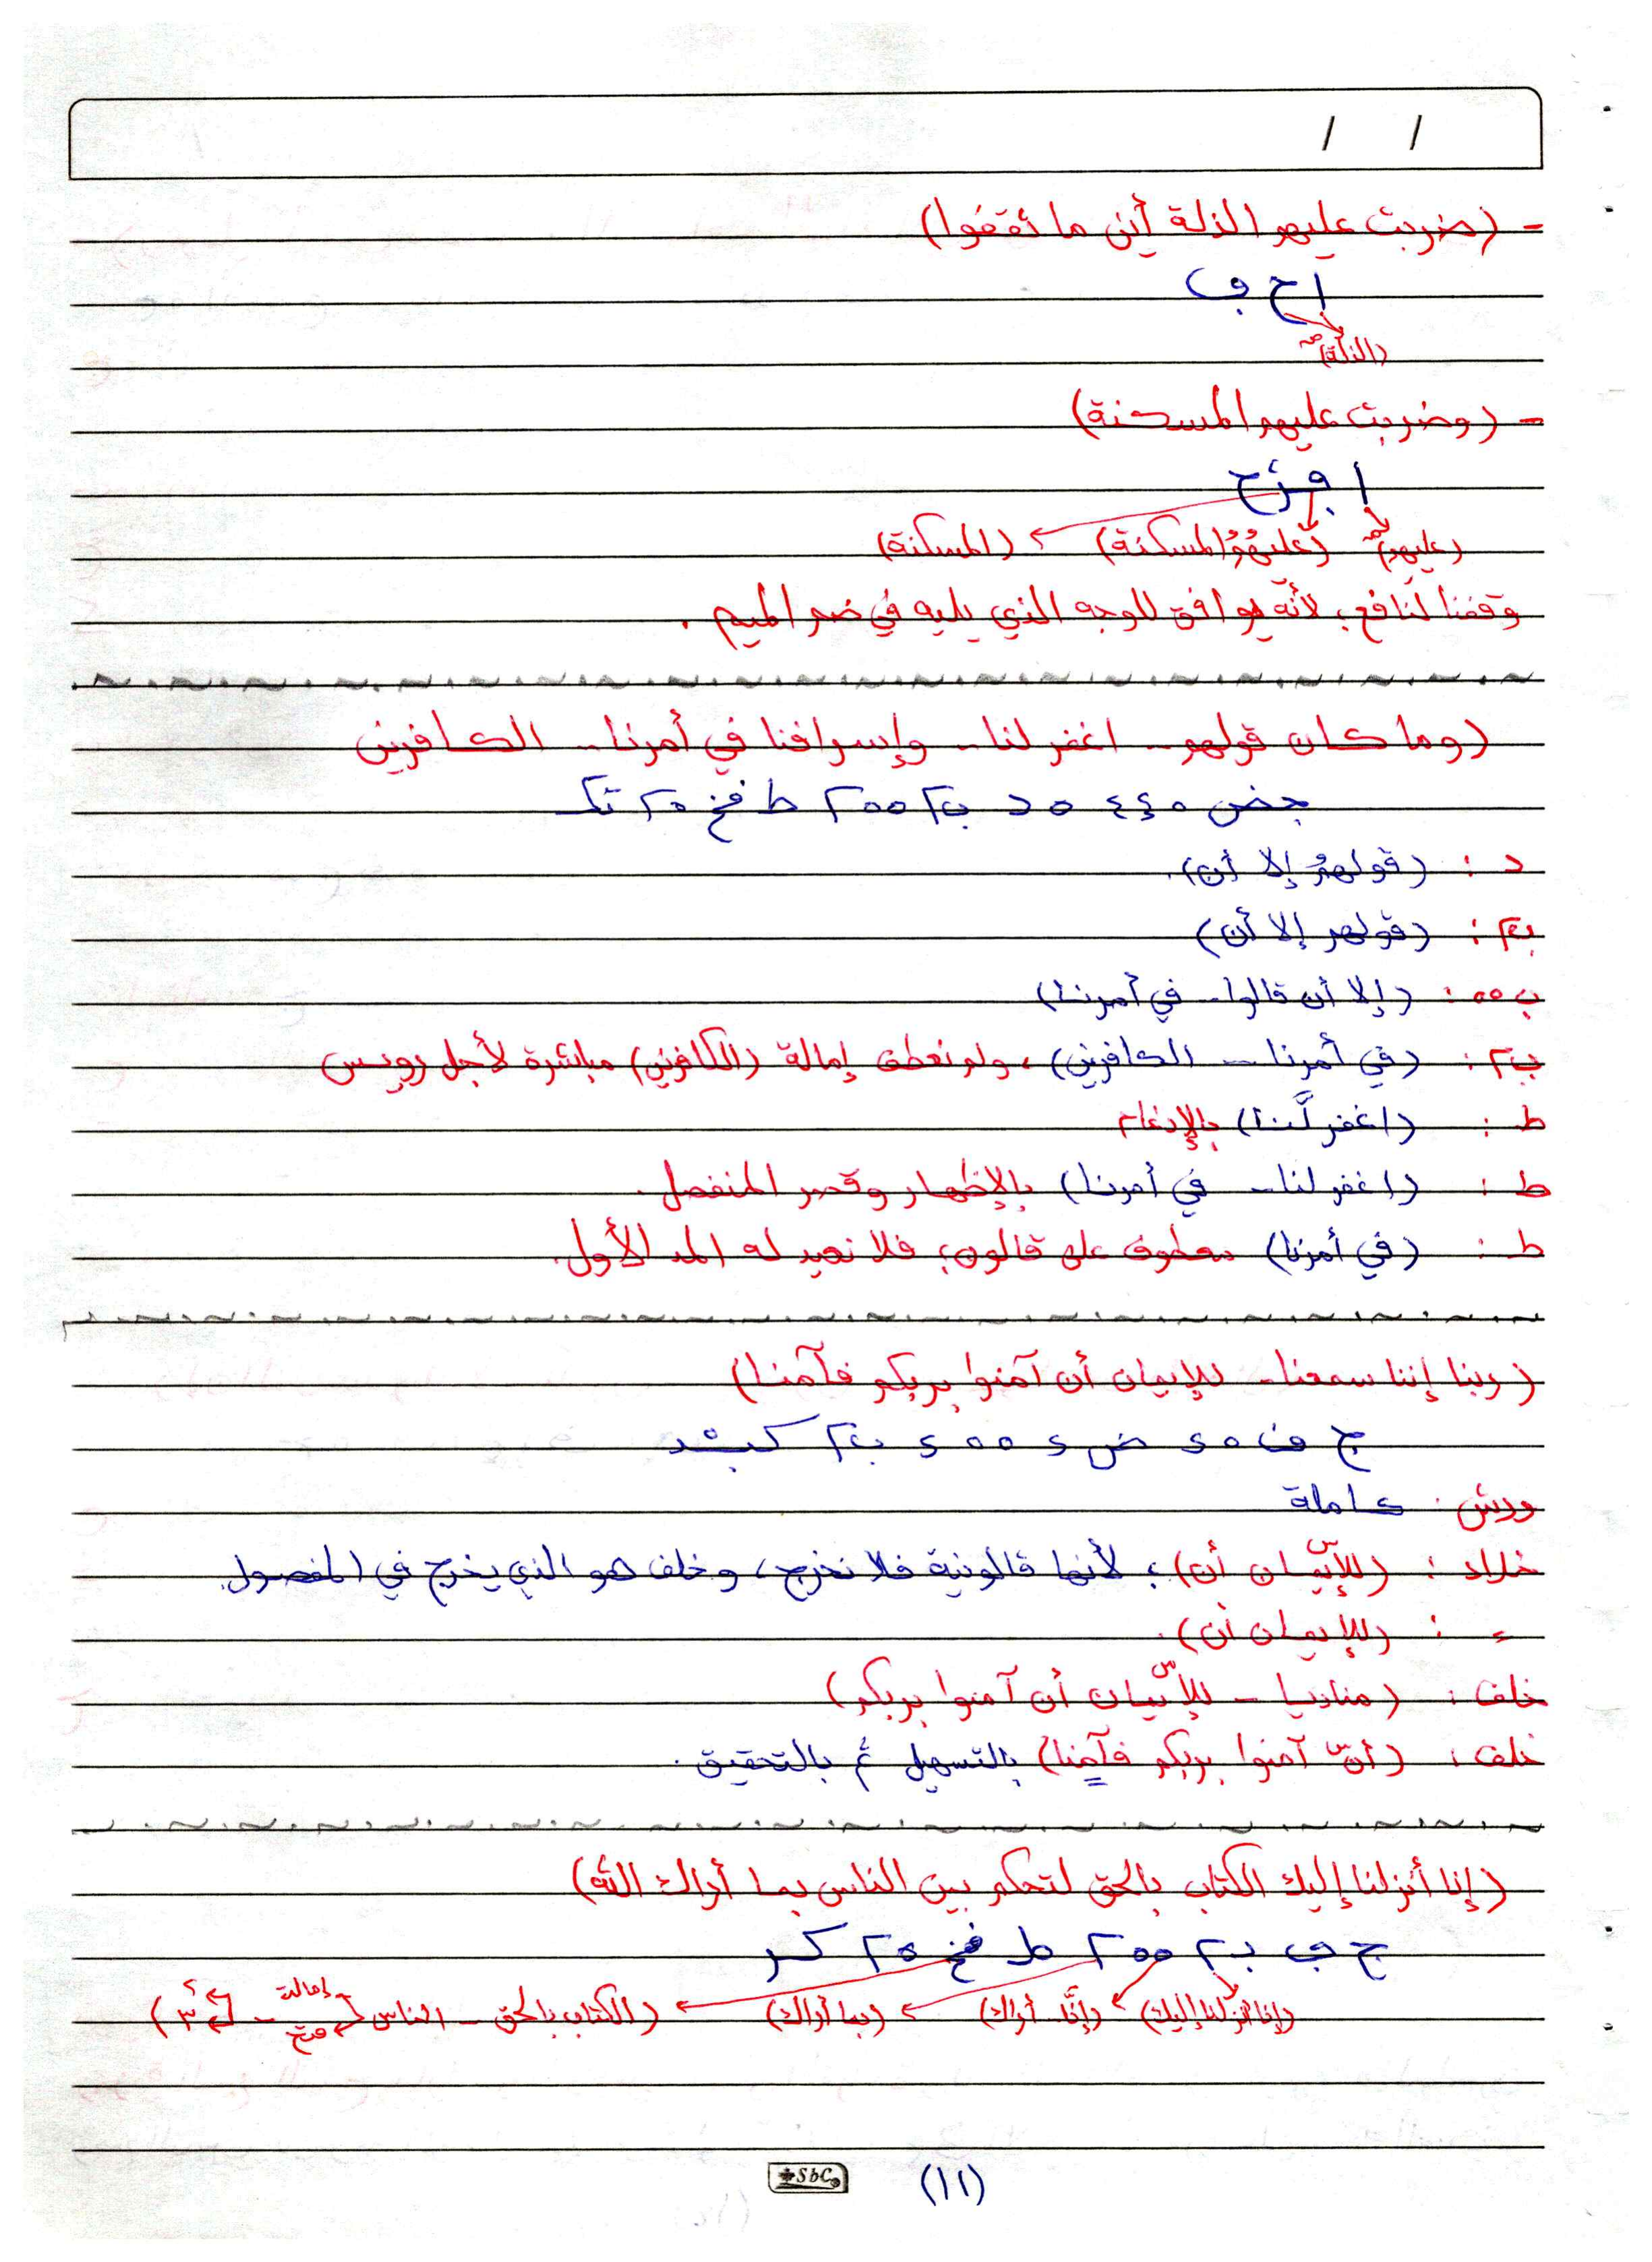 / /
- (ضربت عليهم الذلة أين ما ثقفوا)
ا ح ف
(الذلة)
- (وضربت عليهم المسكنة)
ا ف ح
(عليهم) (عليهُمُ المسكنة) (المسكنة)
وقفنا لنافع؛ لأنه موافق للوجه الذي يليه في ضم الميم.
(وما كان قولهم - اغفر لنا - وإسرافنا في أمرنا - الكافرين
د : (قولهمُ إلا أن).
ب٢ : (قولهم إلا أن)
ب ٥٥ : (إلا أن قالوا - في أمرنا)
ب٢ : (في أمرنا - الكافرين)، ولم نعطف إمالة (الكافرين) مباشرة لأجل رويس
ط : (اغفر لَّنا) بالإدغام
ط : (اغفر لنا - في أمرنا) بالإظهار وقصر المنفصل.
ط : (في أمرنا) معطوف على قالون؛ فلا نعيد له المد الأول.
(ربنا إننا سمعنا - للإيمان أن آمنوا بربكم فآمنا)
ورش : كاملة
خلاد : (للإيمان أن)؛ لأنها قالونية فلا نخرج، وخلف هو الذي يخرج في المفصول.
ء : (للإيمان أن).
خلف : (مناديا - للإيمان أن آمنوا بربكم)
خلف : (أن آمنوا بربكم فآمنا) بالتسهيل ثم بالتحقيق.
(إنا أنزلنا إليك الكتاب بالحق لتحكم بين الناس بما أراك الله)
ج ف ب٢ ٥٥ ٢ ط فخ ٢٥ كر
(إنا أنزلنا إليك) (إنَّا - أراك) (بما أراك) (الكتاب بالحق - الناس إمالة فتح - ٣)
SbC
(١١)